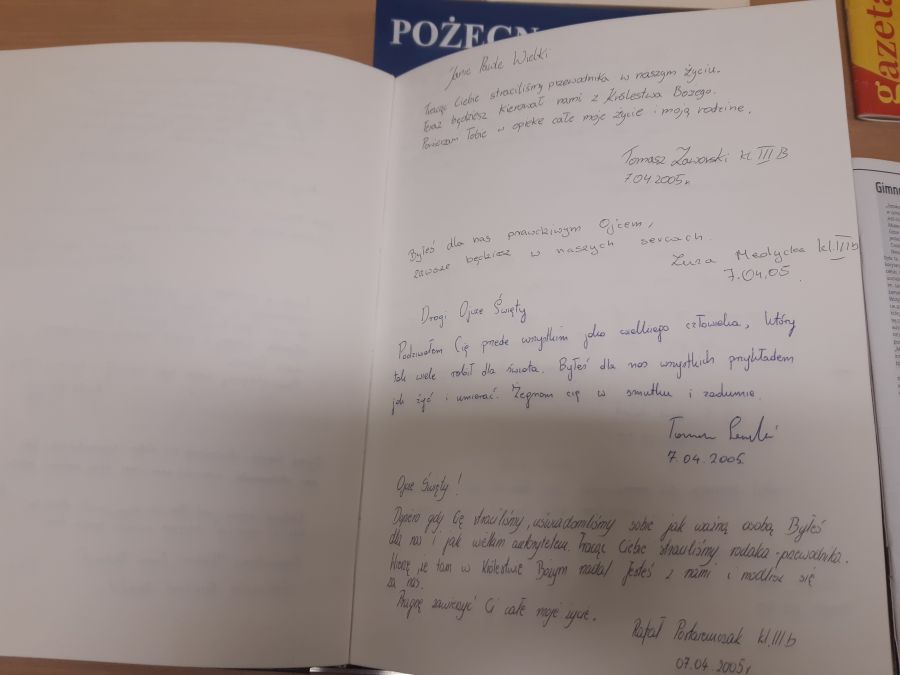 POŻEGN
gazeta
Gimn
Janie Pawle Wielki
Tracąc Ciebie straciliśmy przewodnika w naszym życiu.
Teraz będziesz kierował nami z Królestwa Bożego.
Powierzam Tobie w opiekę całe moje życie i moją rodzinę.
Tomasz Zaworski kl III B
7.04.2005r.
Byłeś dla nas prawdziwym Ojcem,
zawsze będziesz w naszych sercach.
Zuza Medycka kl. III b
7.04.05
Drogi Ojcze Święty
Podziwiałem Cię przede wszystkim jako wielkiego człowieka, który
tak wiele robił dla świata. Byłeś dla nas wszystkich przykładem
jak żyć i umierać. Żegnam cię w smutku i zadumie.
7.04.2005
Ojcze Święty!
Dopiero gdy Cię straciliśmy, uświadomiliśmy sobie jak ważną osobą Byłeś
dla nas i jak wielkim autorytetem. Tracąc Ciebie straciliśmy rodaka-przewodnika.
Wierzę, że tam w Królestwie Bożym nadal jesteś z nami i modlisz się
za nas.
Pragnę zawierzyć Ci całe moje życie.
Rafał kl. III b
07.04.2005r